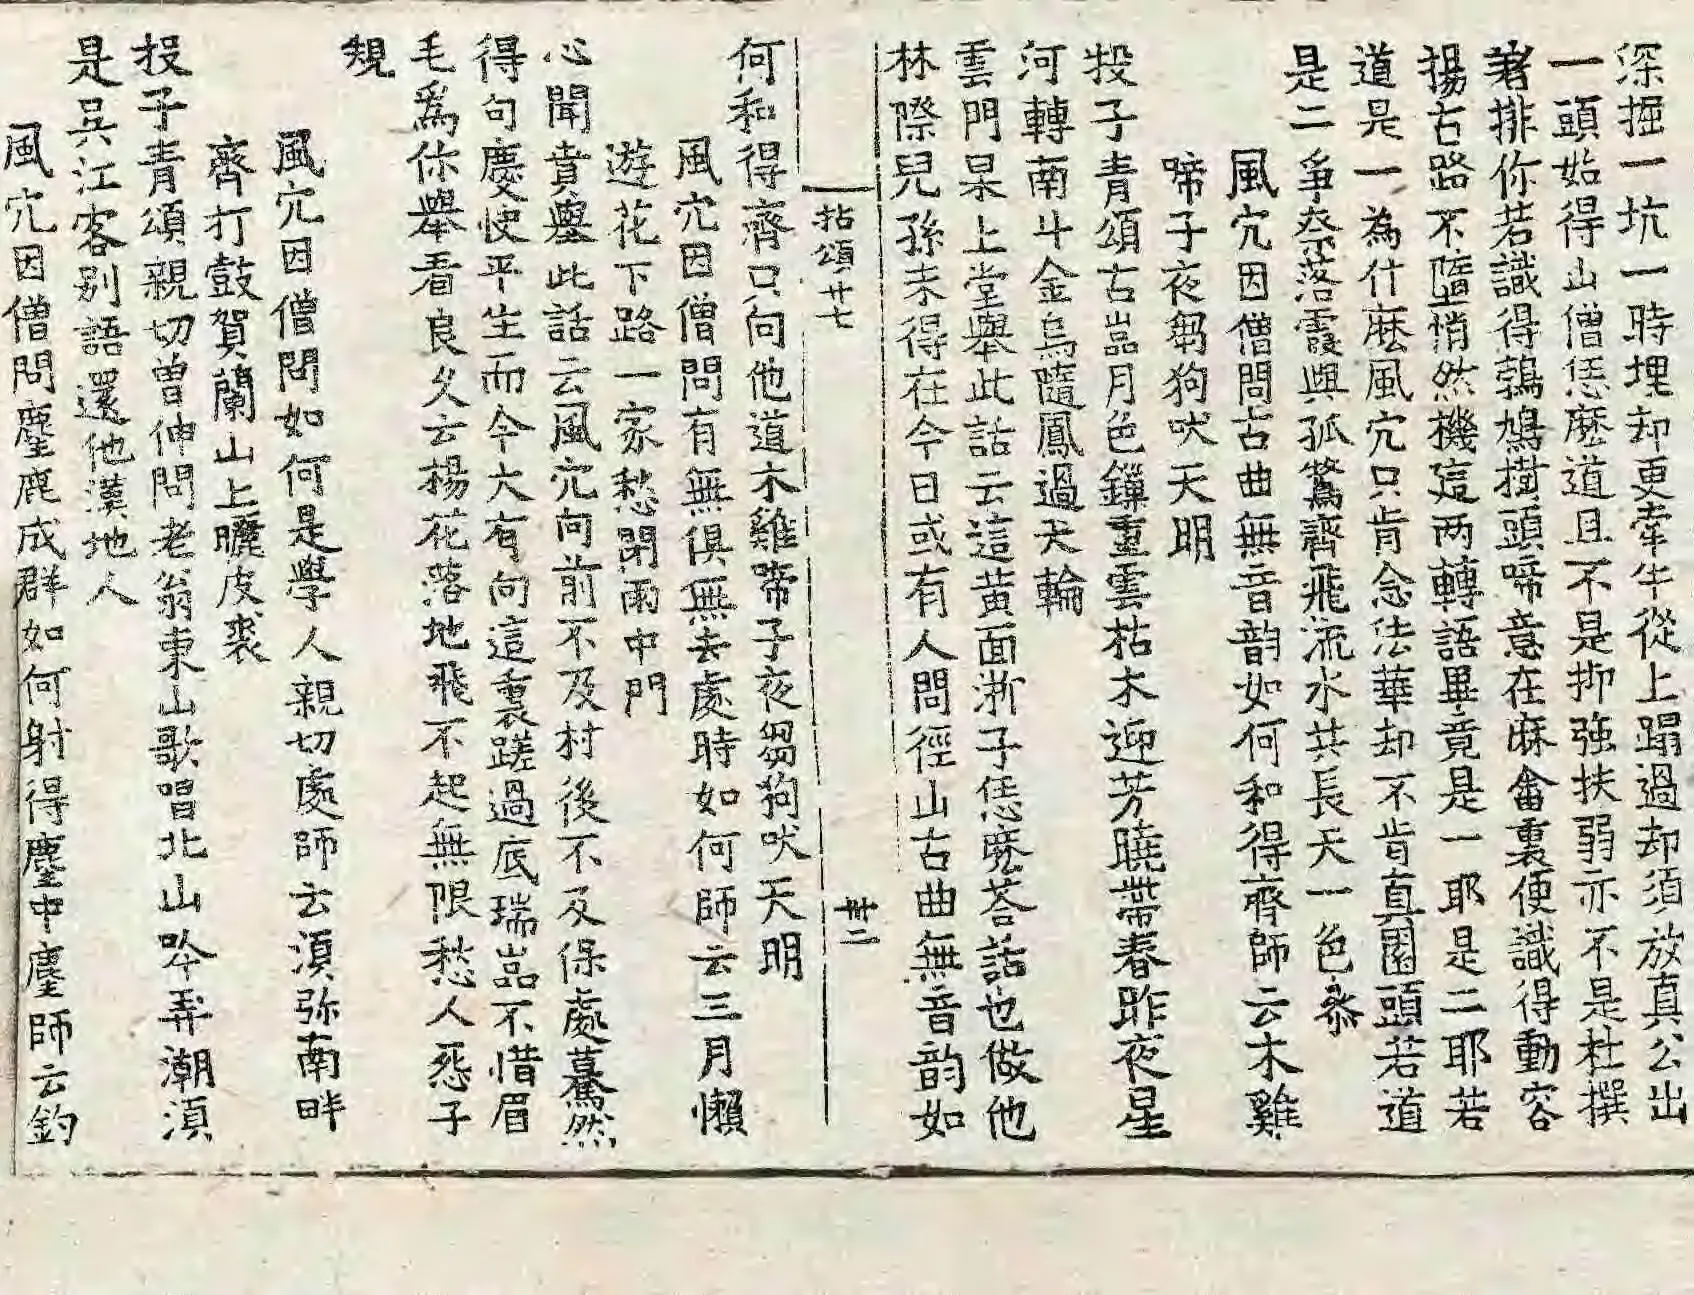 深掘一坑一時埋却更牽牛從上蹋過却須放真公出
一頭始得山僧恁麽道且不是抑強扶弱亦不是杜撰
差排你若識得鵓鳩樹頭啼意在麻畬裏便識得動容
揚古路不墮悄然機這兩轉語畢竟是一耶是二耶若
道是一為什麽風穴只肯念法華却不肯真園頭若道
是二爭柰落霞與孤鶩齊飛流水共長天一色叅
風穴因僧問古曲無音韵如何和得齊師云木雞
啼子夜芻狗吠天明
投子青頌古嵓月色鏁重雲枯木迎芳曉帶春昨夜星
河轉南斗金烏隨鳳過天輪
雲門杲上堂舉此話云這黃面淅子恁麽荅話也做他
林際兒孫未得在今日或有人問徑山古曲無音韵如
拈頌廿七
卅二
何和得齊只向他道木雞啼子夜芻狗吠天明
風穴因僧問有無俱無去處時如何師云三月懶
遊花下路一家愁閉雨中門
心聞賁舉此話云風穴向前不及村後不及保處驀然
得句慶快平生而今大有向這裏蹉過底瑞嵓不惜眉
毛爲你舉看良久云楊花落地飛不起無限愁人怨子
規
風穴因僧問如何是學人親切處師云須弥南畔
齊打鼓賀蘭山上曬皮裘
投子青頌親切曾伸問老翁東山歌唱北山吟弄潮須
是吳江客別語還他漢地人
風穴因僧問麈鹿成群如何射得麈中麈師云釣